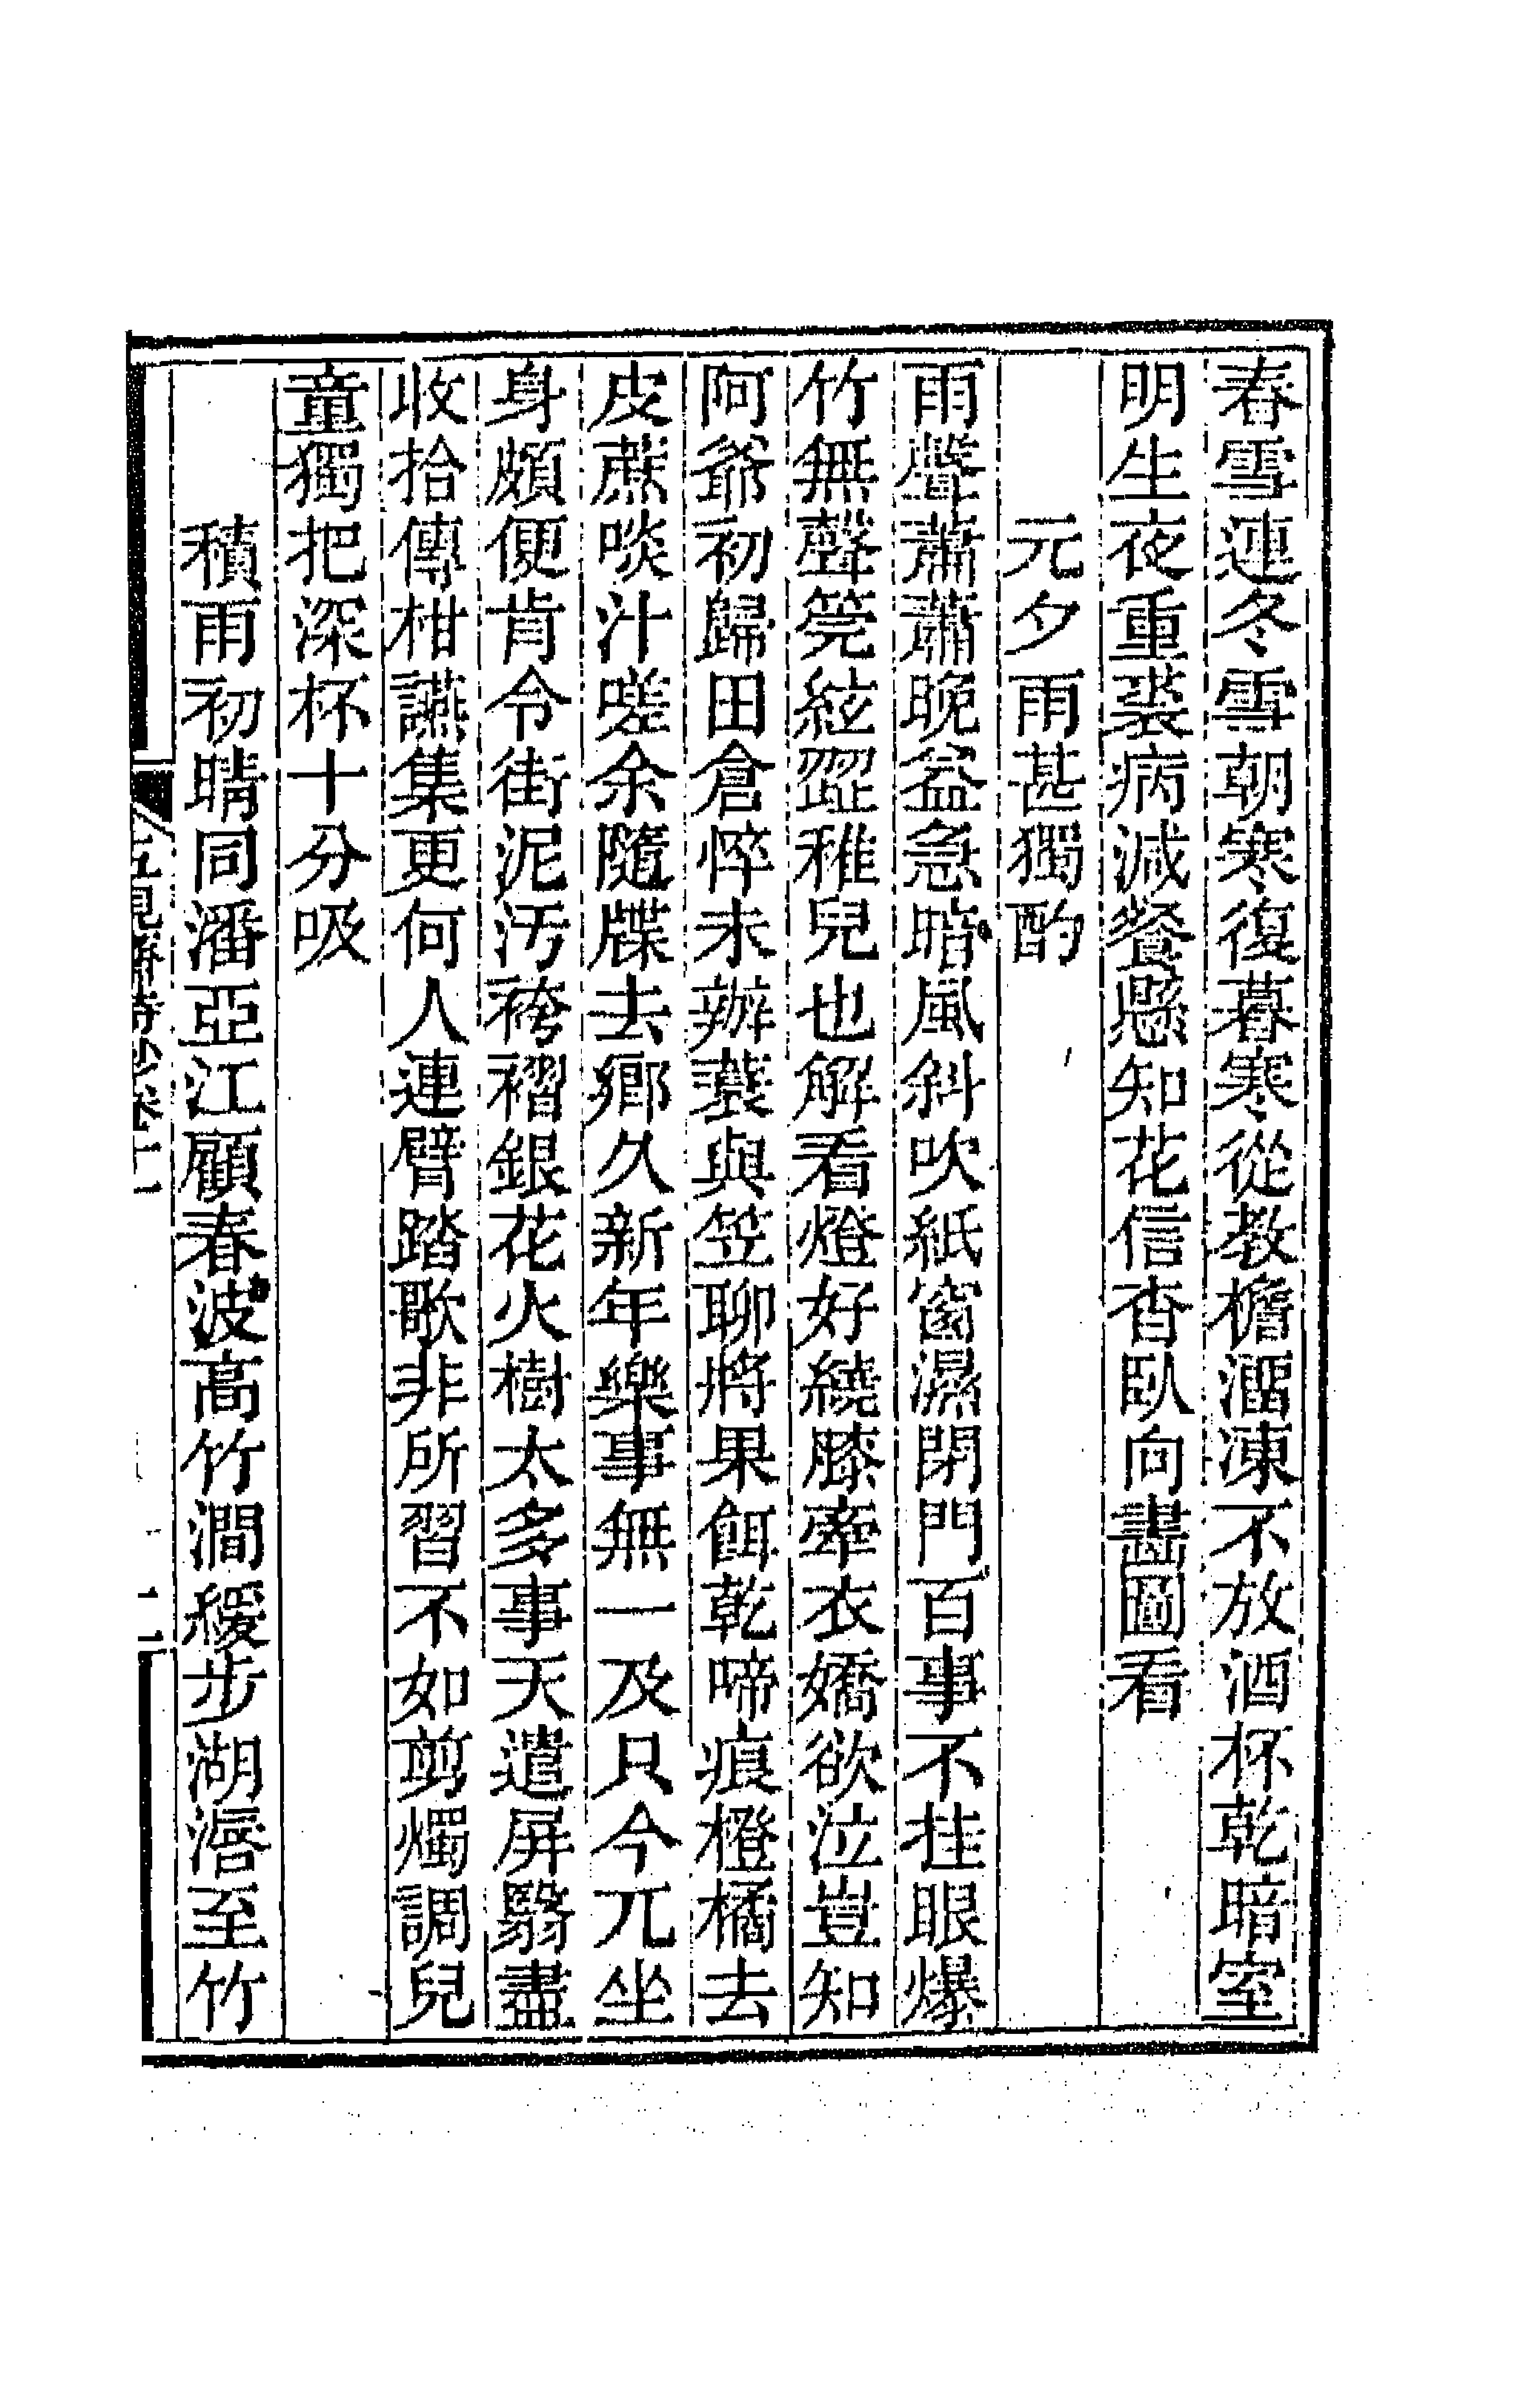 春雪連冬雪朝寒復暮寒從教檐溜凍不放酒杯乾暗室
明生夜重裘病減餐懸知花信杳臥向畫圖看
元夕雨甚獨酌
雨聲蕭蕭晚益急暗風斜吹紙窗濕閉門百事不挂眼爆
竹無聲筦絃澀稚兒也解看燈好繞膝牽衣嬌欲泣豈知
阿爺初歸田倉悴未辦蓑與笠聊將果餌乾啼痕橙橘去
皮蔗啖汁嗟余隨牒去鄉久新年樂事無一及只今兀坐
身頗便肯令街泥汚袴褶銀花火樹太多事天遣屏翳盡
收拾傳柑讌集更何人連臂踏歌非所習不如剪燭調兒
童獨把深杯十分吸
積雨初晴同潘亞江顧春波高竹澗緩步湖漘至竹